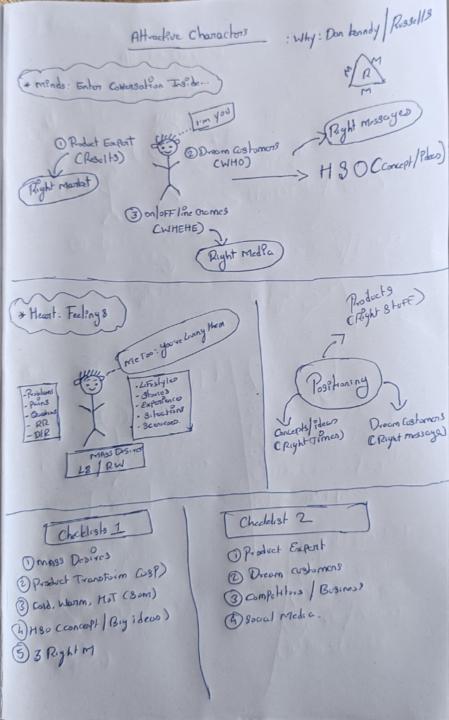 Attractive Characters : Why: Dan Kennedy/Russells
* Minds: Enter Conversation Inside...
M
R
M
M
I'm you
① Product Expert
(Results)
Right Market
② Dream Customers
(WHO)
Right Messages
H S O (Concept/ideas)
③ on/OFF line
(WHERE)
Right Media
* Heart: Feelings
Me Too: you've living them
- Problems
- Pains
- RR
- DLR
- Lifestyles
- Stories
- Experience
- Situations
MASS Desires
L8 / RW
Products
(Right Stuff)
Positioning
Concepts/ideas
(Right Times)
Dream Customers
(Right message)
Checklists 1
① Mass Desires
② Product Transform (USP)
③ Cold, Warm, HoT (Som)
④ HSO (Concept / Big ideas)
⑤ 3 Right M
Checklist 2
① Product Expert
② Dream Customers
③ Competitors / Business
④ Social Media.